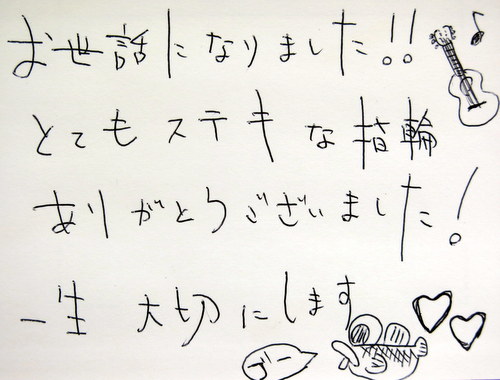 お世話になりました!!
とてもステキな指輪
ありがとうございました!
一生 大切にします
ブー